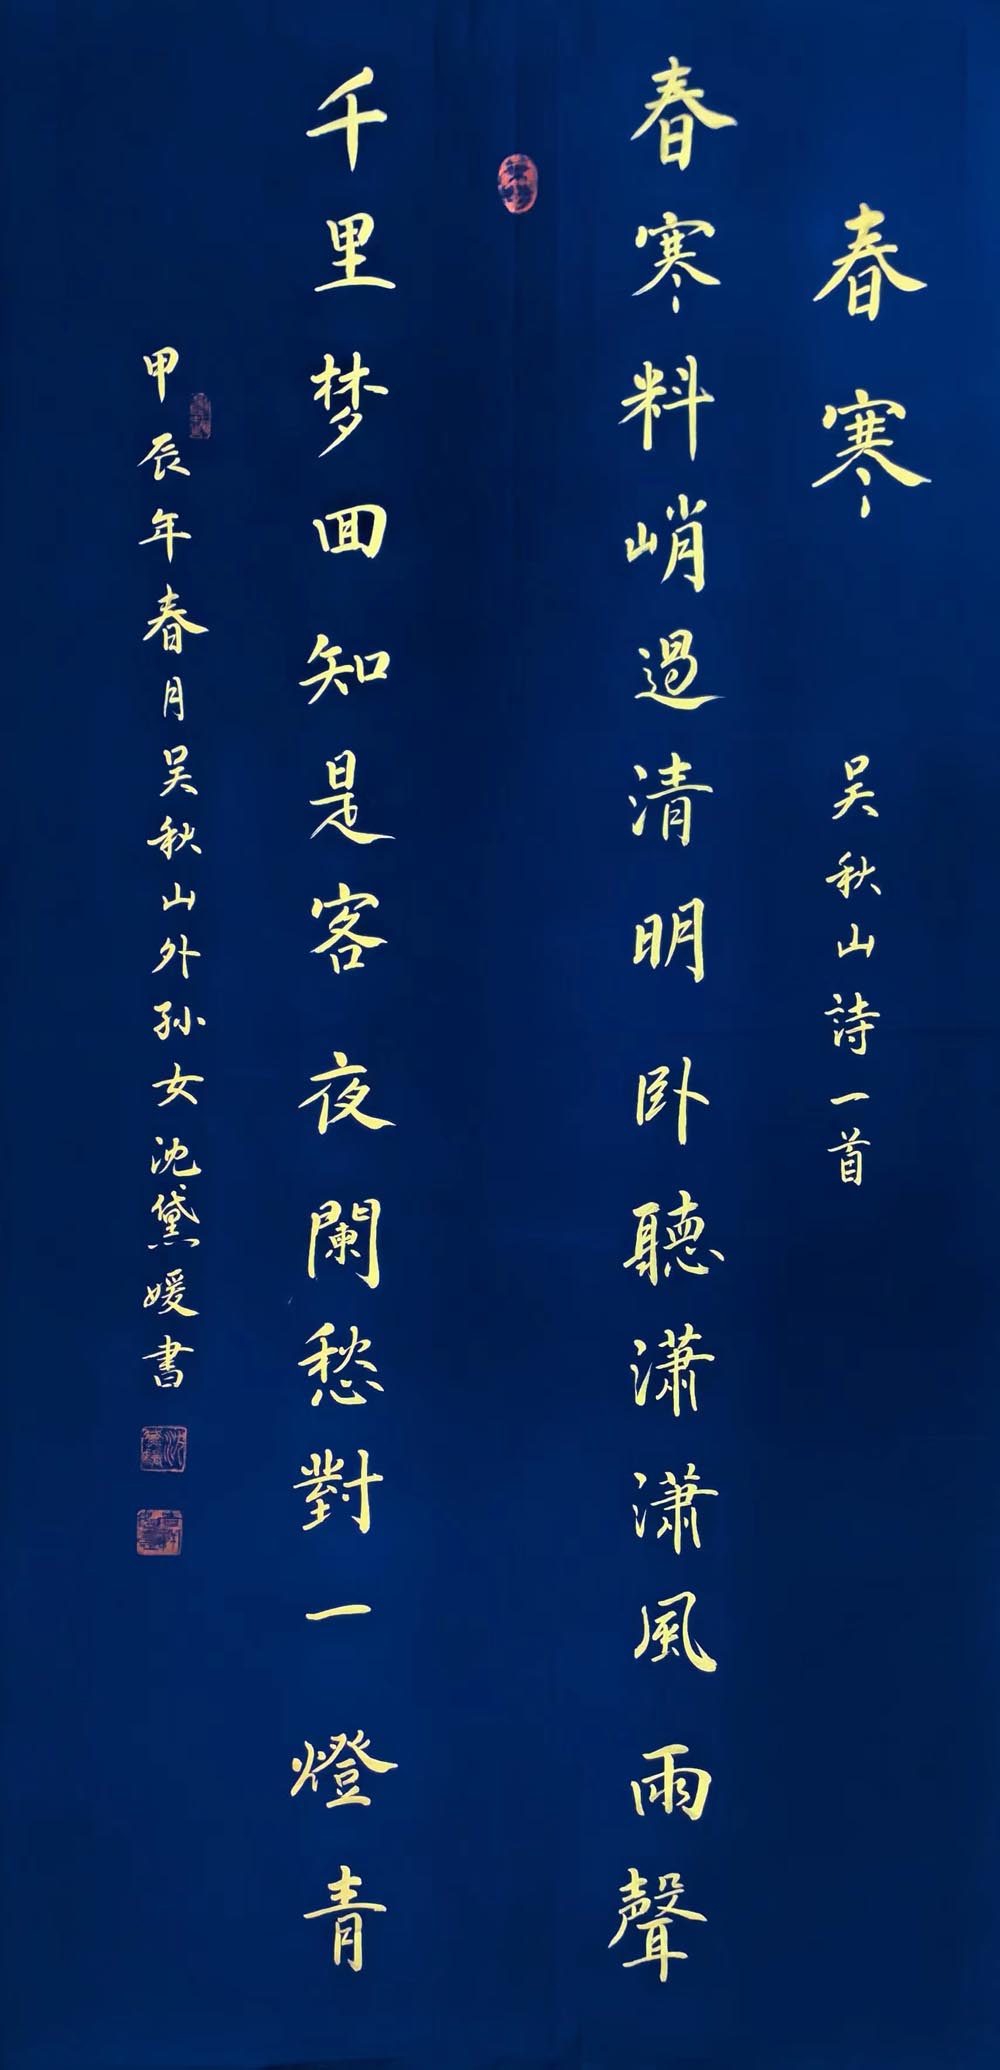 春寒 吴秋山詩一首
春寒料峭過清明卧聽潇潇風雨聲
千里梦回知是客夜闌愁對一燈青
甲辰年春月吴秋山外孙女沈黛媛書